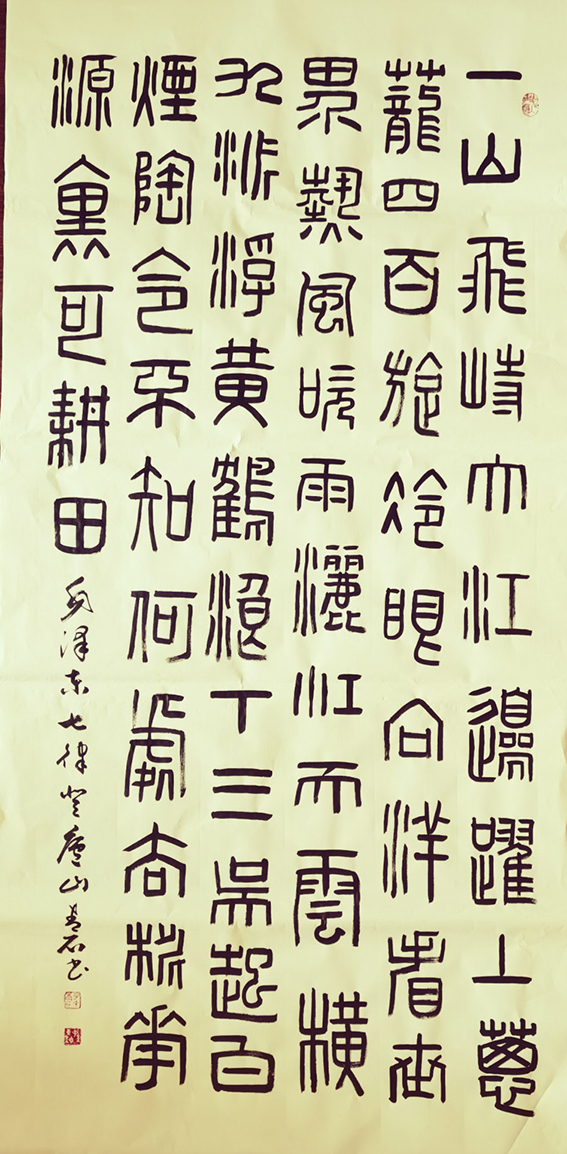 一山飛峙大江邊躍上蔥
蘢四百旋冷眼向洋看世
界熱風吹雨灑江天雲橫
九派浮黃鶴浪下三吳起白
煙陶令不知何處去桃花
源裏可耕田
毛澤東七律登廬山青石书